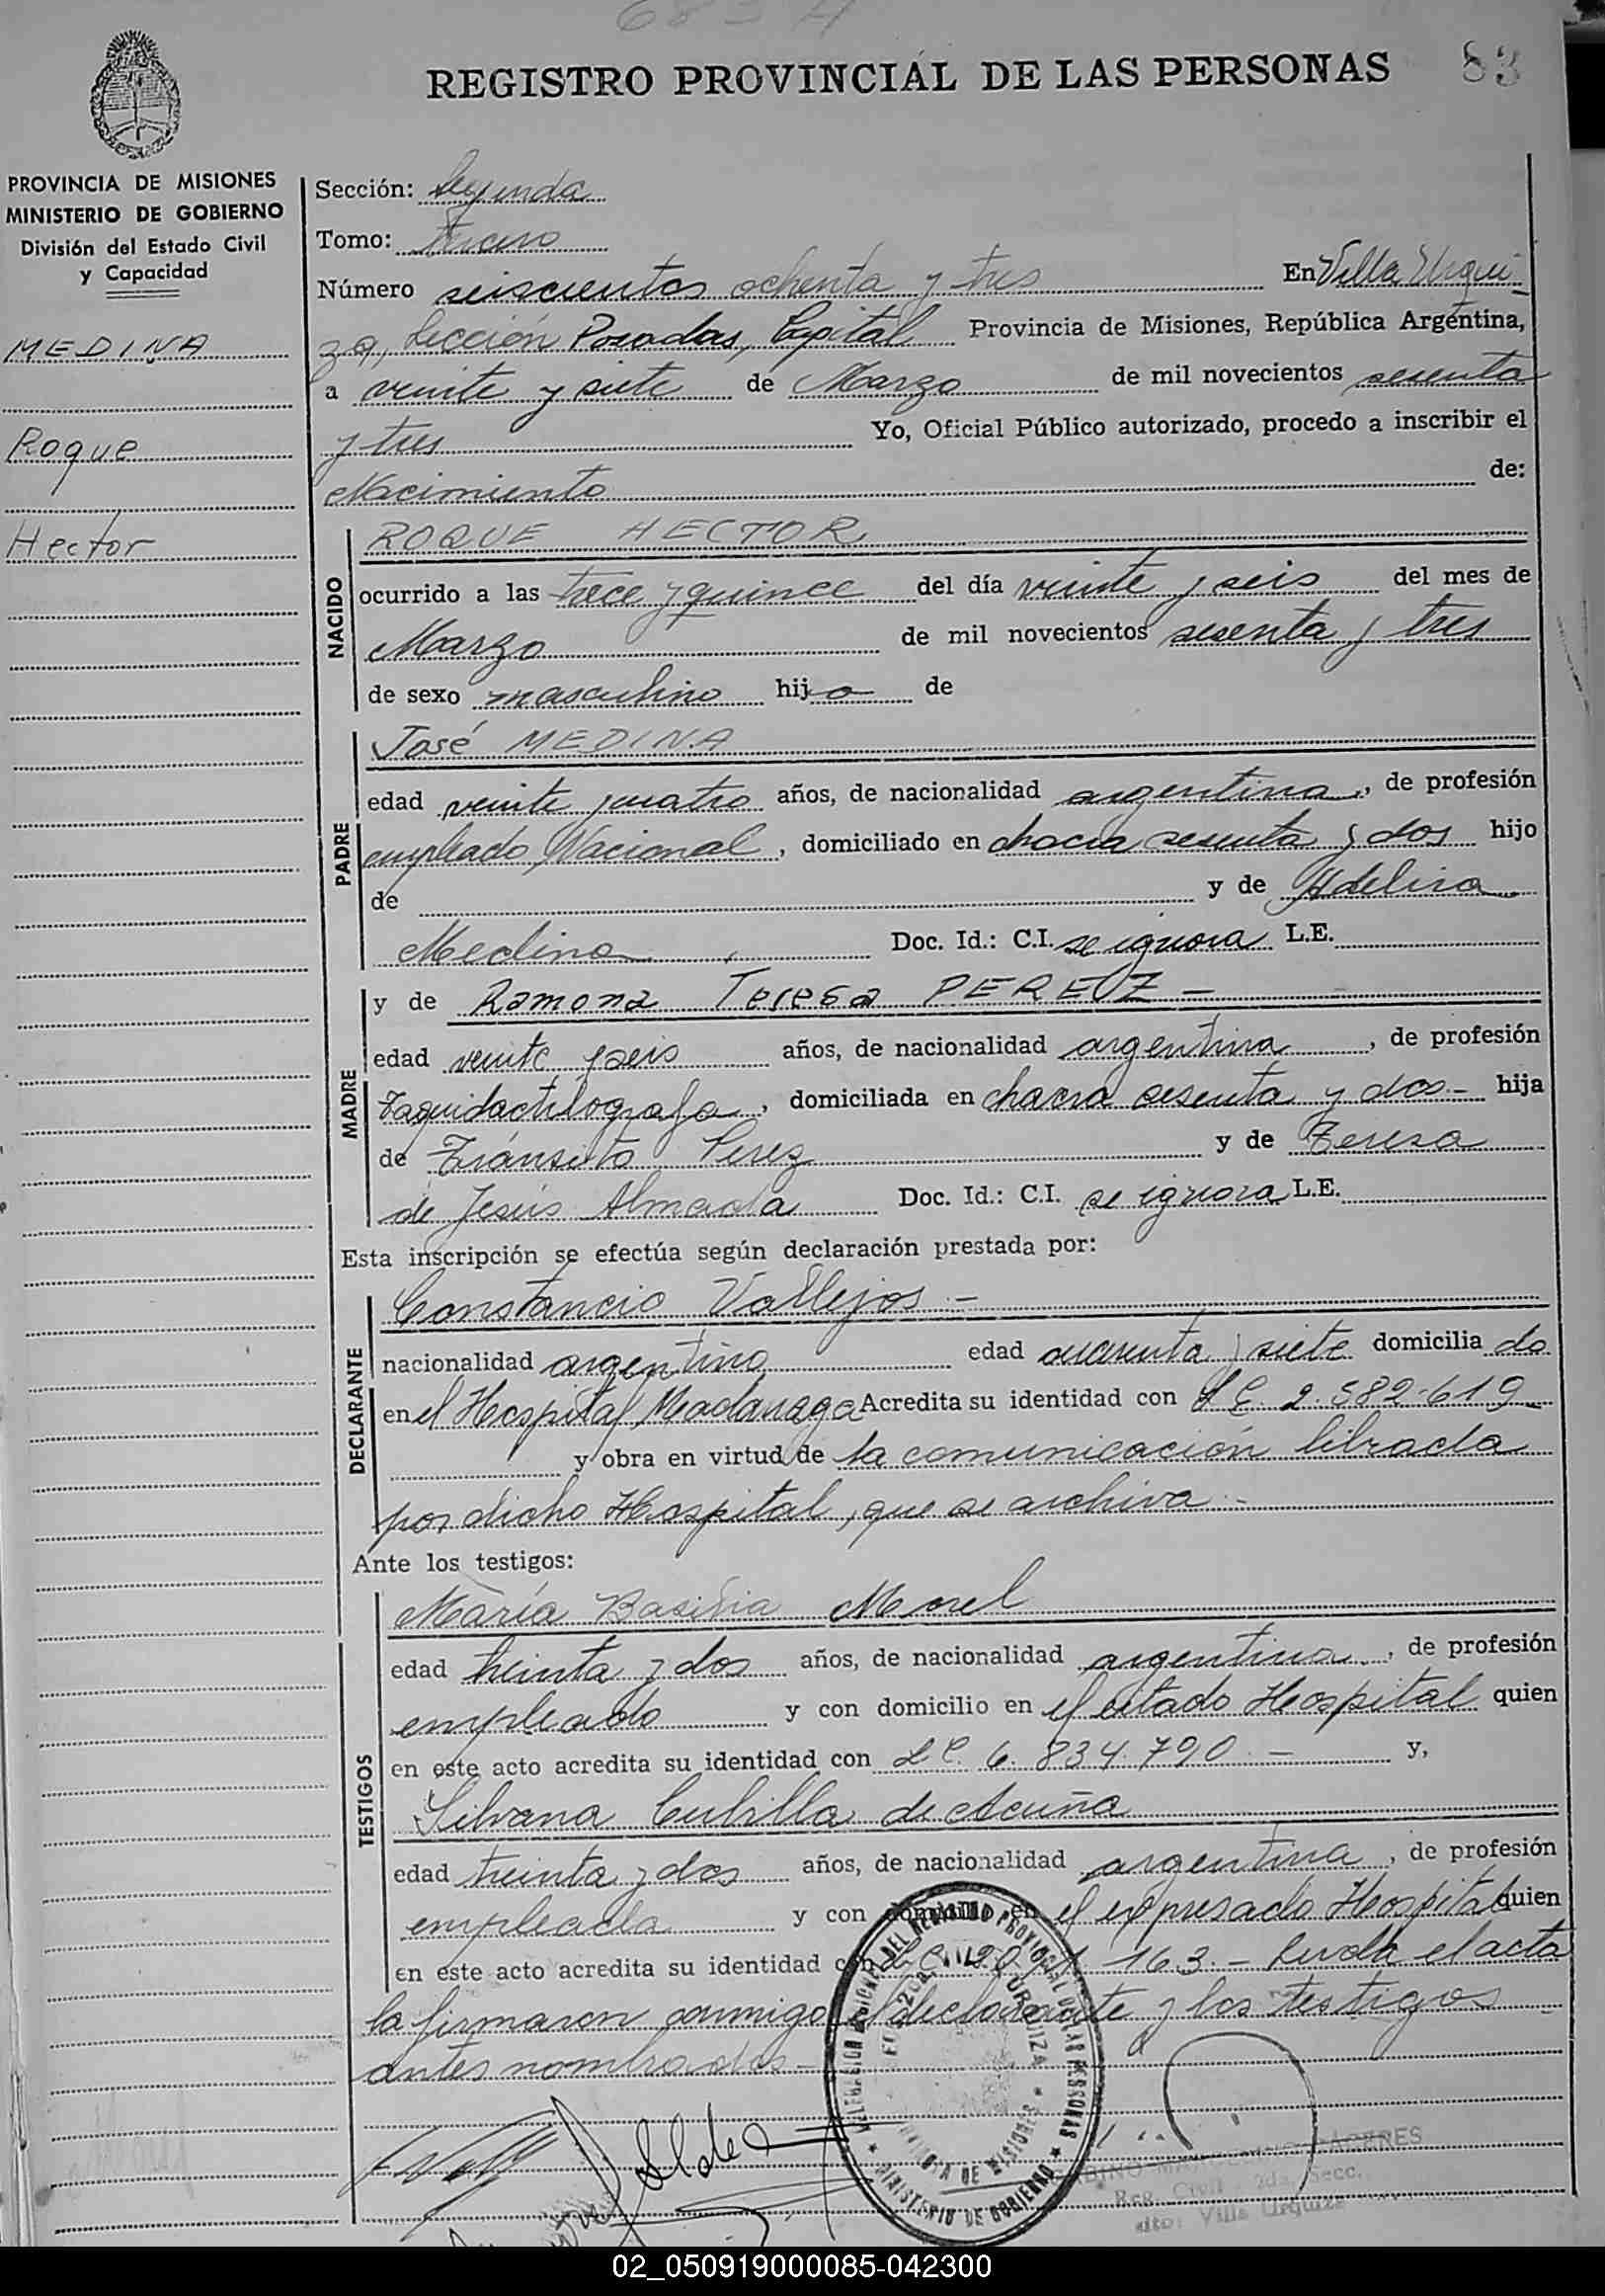 683 A
REGISTRO PROVINCIAL DE LAS PERSONAS 83
PROVINCIA DE MISIONES
MINISTERIO DE GOBIERNO
División del Estado Civil
y Capacidad
MEDINA
Roque
Hector
Sección: Segunda
Tomo: tercero
Número seiscientos ochenta y tres En Villa Urqui-
za, Sección Posadas, Capital Provincia de Misiones, República Argentina,
a veinte y siete de Marzo de mil novecientos sesenta
y tres Yo, Oficial Público autorizado, procedo a inscribir el
Nacimiento de:
NACIDO
ROQUE HECTOR
ocurrido a las trece y quince del día veinte y seis del mes de
Marzo de mil novecientos sesenta y tres
de sexo masculino hijo de
PADRE
José MEDINA
edad veinte y cuatro años, de nacionalidad argentina, de profesión
empleado Nacional, domiciliado en chacra sesenta y dos hijo
de y de Adelina
Medina Doc. Id.: C.I. se ignora L.E.
MADRE
y de Ramona Teresa PEREZ -
edad veinte y seis años, de nacionalidad argentina, de profesión
Taquidactilografa, domiciliada en chacra sesenta y dos - hija
de Tránsito Perez y de Teresa
de Jesús Almada Doc. Id.: C.I. se ignora L.E.
Esta inscripción se efectúa según declaración prestada por:
DECLARANTE
Constancio Vallejos -
nacionalidad argentino edad cuarenta y siete domicilia do
en el Hospital Madariaga Acredita su identidad con L E. 2.582.619
y obra en virtud de la comunicación librada
por dicho Hospital, que se archiva -
Ante los testigos:
TESTIGOS
María Basilia Morel
edad treinta y dos años, de nacionalidad argentina, de profesión
empleado y con domicilio en el citado Hospital quien
en este acto acredita su identidad con L C. 6.834.790 - y,
Silvana Cubilla de Acuña
edad treinta y dos años, de nacionalidad argentina, de profesión
empleada y con domicilio en el expresado Hospital quien
en este acto acredita su identidad con 163 - Leida el acta
la firmaron conmigo el declarante y los testigos
antes nombrados -
DEL REGISTRO PROVINCIAL DE LAS PERSONAS
PROVINCIA DE MISIONES
MINISTERIO DE GOBIERNO
CACERES
Reg. Civil 2da. Secc.
Villa Urquiza
02_050919000085-042300